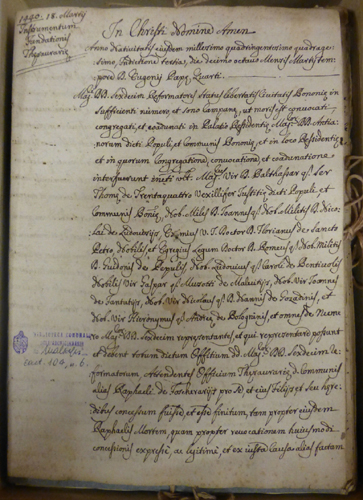 1440. 18. Martij
Instrumentum
fundationis
Thesaurariæ
In Christi Nomine Amen
Anno Nativitatis eiusdem millesimo quadringentesimo quadrage=
simo Indictione tertia, die decimo octavo Mensis Martij tem=
pore D. Eugenij Papæ Quarti.
Mag. DD. Sexdecim Reformatores Status libertatis Civitatis Bononiæ in
sufficienti numero et sono Campanæ, ut moris est convocati
congregati, et coadunati in Palatio Residentiæ Mag. DD. Antia=
norum dicti Populi, et Communis Bononiæ, et in loco Residentiæ
et in quorum Congregatione, convocatione, et coadunatione
interfuerunt Mag. Vir D. Balthassar q. Ser
Thomæ de Trentaquattro Vexillifer Iustitiæ dicti Populi, et
Communis Boniæ, Nob. Miles D. Ioannes q. Nob. Militis D. Nico=
lai de Ludovisijs, Eximius V. I. Doctor D. Florianus de Sancto
Petro Nobilis, et Egregius legum Doctor D. Romeus q. Nob. Militis
D. Guidonis de Pepulis, Nob. Ludovicus q. Caroli de Bentivolis
Nobilis Vir Gaspar q. Musotti de Malvitijs, Nob. Vir Ioannes
de fantutijs, Nob. Vir Nicolaus q. D. Ioannis de Gozadinis, et
Nob. Vir Hieronymus q. Andreæ de Bologninis, et omnes de Nume=
ro Mag. DD. Sexdecim representantes, et qui representare possunt
et debent totum dictum Offitium DD. Mag. DD. Sexdecim Re=
formatorum Attendentes Officium Thesaurariæ d. Communis
alias Raphaeli de foscherarijs pro se, et eius filijs, et seu here=
ditus concessum fuisse, et esse finitum, tam propter eiusdem
Raphaelis Mortem, quam propter revocationem huiusmodi
concessionis expresse, ac legitimi, et ex iusta Causa alias factam